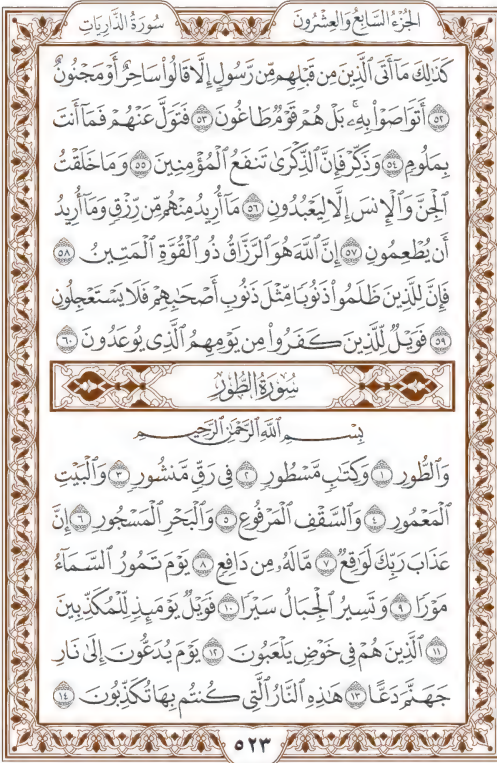 الجُزْءُ السَّابِعُ وَالعِشْرُونَ سُورَةُ الذَّارِيَاتِ
كَذَٰلِكَ مَآ أَتَى ٱلَّذِينَ مِن قَبۡلِهِم مِّن رَّسُولٍ إِلَّا قَالُواْ سَاحِرٌ أَوۡ مَجۡنُونٌ
٥٢ أَتَوَاصَوۡاْ بِهِۦۚ بَلۡ هُمۡ قَوۡمٌ طَاغُونَ ٥٣ فَتَوَلَّ عَنۡهُمۡ فَمَآ أَنتَ
بِمَلُومٍ ٥٤ وَذَكِّرۡ فَإِنَّ ٱلذِّكۡرَىٰ تَنفَعُ ٱلۡمُؤۡمِنِينَ ٥٥ وَمَا خَلَقۡتُ
ٱلۡجِنَّ وَٱلۡإِنسَ إِلَّا لِيَعۡبُدُونِ ٥٦ مَآ أُرِيدُ مِنۡهُم مِّن رِّزۡقٍ وَمَآ أُرِيدُ
أَن يُطۡعِمُونِ ٥٧ إِنَّ ٱللَّهَ هُوَ ٱلرَّزَّاقُ ذُو ٱلۡقُوَّةِ ٱلۡمَتِينُ ٥٨
فَإِنَّ لِلَّذِينَ ظَلَمُواْ ذَنُوبًا مِّثۡلَ ذَنُوبِ أَصۡحَٰبِهِمۡ فَلَا يَسۡتَعۡجِلُونِ
٥٩ فَوَيۡلٌ لِّلَّذِينَ كَفَرُواْ مِن يَوۡمِهِمُ ٱلَّذِي يُوعَدُونَ ٦٠
سُورَةُ الطُّورِ
بِسۡمِ ٱللَّهِ ٱلرَّحۡمَٰنِ ٱلرَّحِيمِ
وَٱلطُّورِ ١ وَكِتَٰبٍ مَّسۡطُورٍ ٢ فِي رَقٍّ مَّنشُورٍ ٣ وَٱلۡبَيۡتِ
ٱلۡمَعۡمُورِ ٤ وَٱلسَّقۡفِ ٱلۡمَرۡفُوعِ ٥ وَٱلۡبَحۡرِ ٱلۡمَسۡجُورِ ٦ إِنَّ
عَذَابَ رَبِّكَ لَوَٰقِعٌ ٧ مَّا لَهُۥ مِن دَافِعٍ ٨ يَوۡمَ تَمُورُ ٱلسَّمَآءُ
مَوۡرًا ٩ وَتَسِيرُ ٱلۡجِبَالُ سَيۡرًا ١٠ فَوَيۡلٌ يَوۡمَئِذٍ لِّلۡمُكَذِّبِينَ
١١ ٱلَّذِينَ هُمۡ فِي خَوۡضٍ يَلۡعَبُونَ ١٢ يَوۡمَ يُدَعُّونَ إِلَىٰ نَارِ
جَهَنَّمَ دَعًّا ١٣ هَٰذِهِ ٱلنَّارُ ٱلَّتِي كُنتُم بِهَا تُكَذِّبُونَ ١٤
٥٢٣